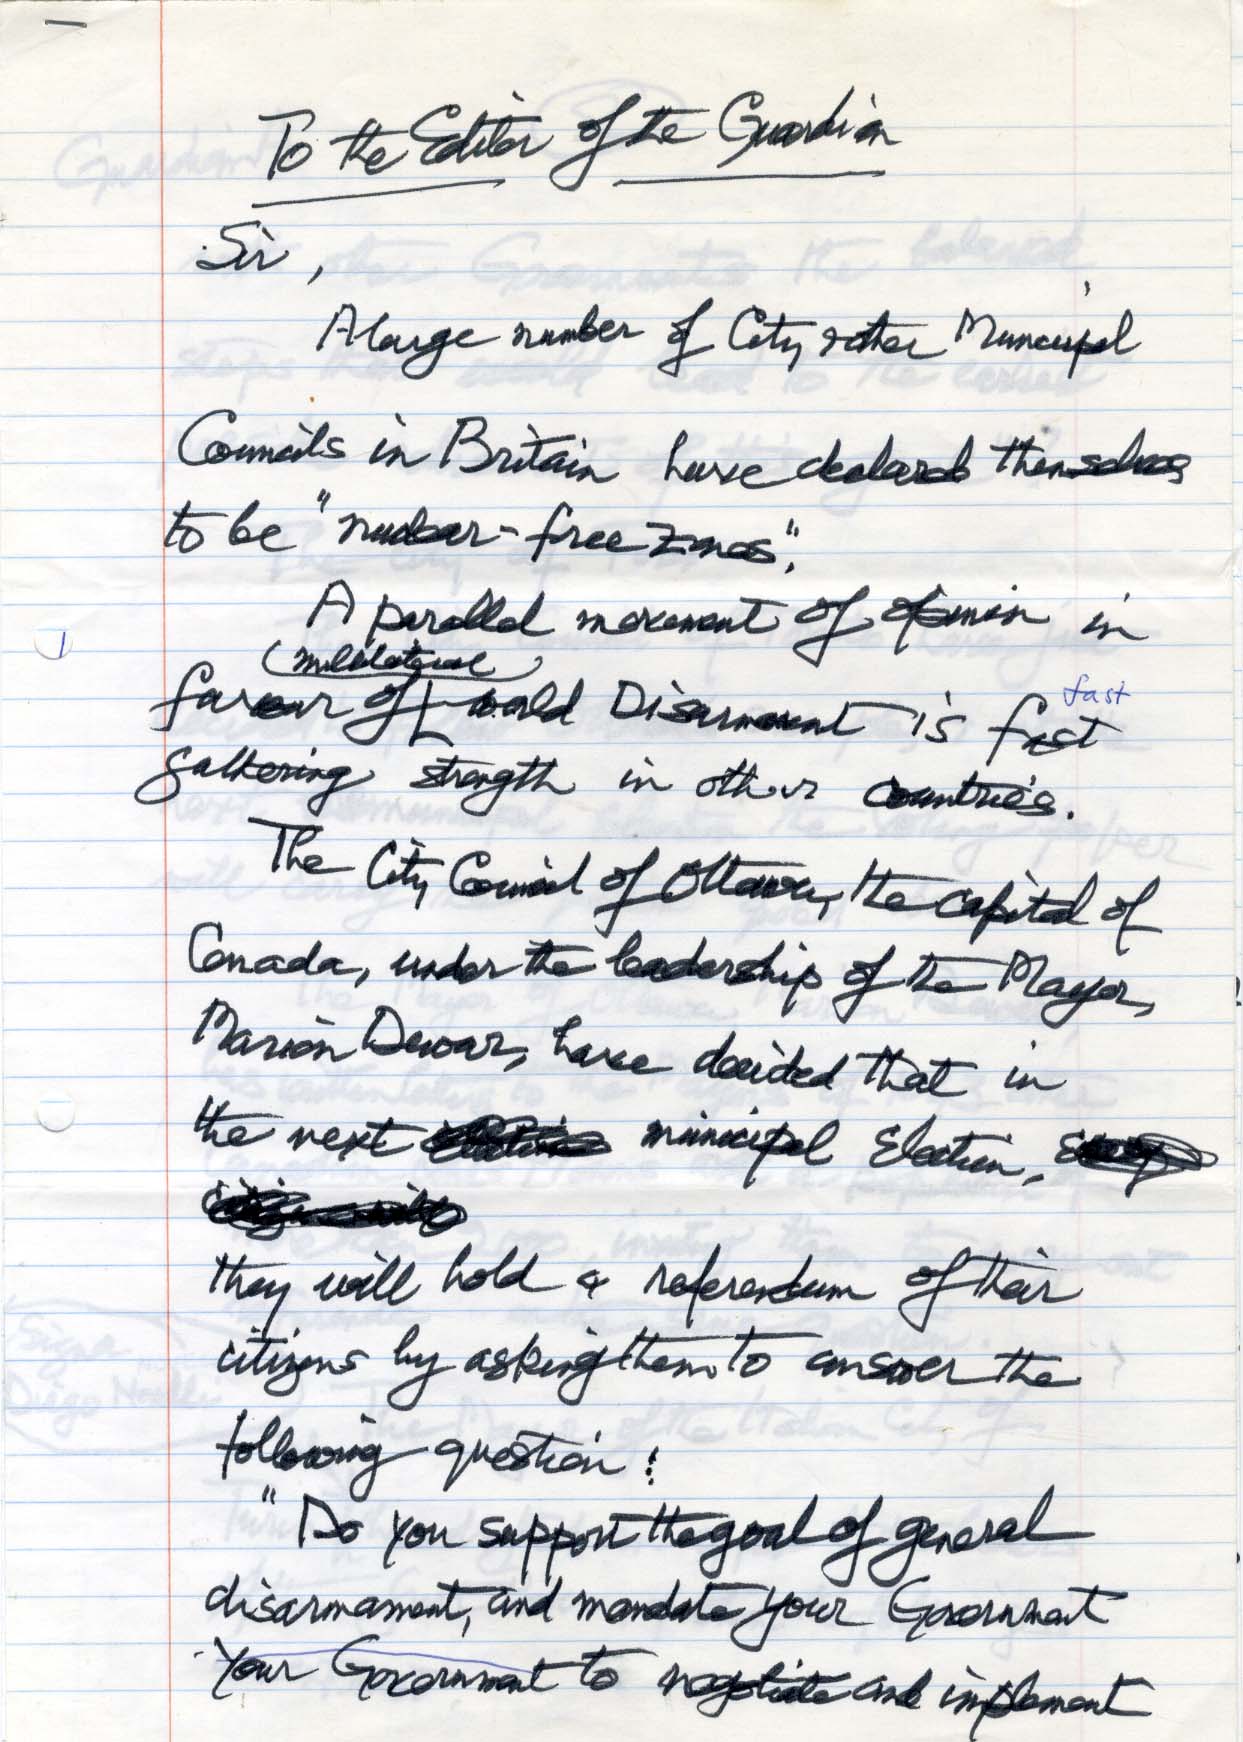 To the Editor of the Guardian
Sir,
A large number of City & other Municipal
Councils in Britain have declared themselves
to be "nuclear-free zones".
A parallel movement of opinion in
(multilateral)
favour of world Disarmament is fast
fast
gathering strength in other countries.
The City Council of Ottawa, the capital of
Canada, under the leadership of the Mayor,
Marion Dewar, have decided that in
the next municipal election,
they will hold a referendum of their
citizens by asking them to answer the
following question:
"Do you support the goal of general
disarmament, and mandate your Government
your Government to negotiate and implement